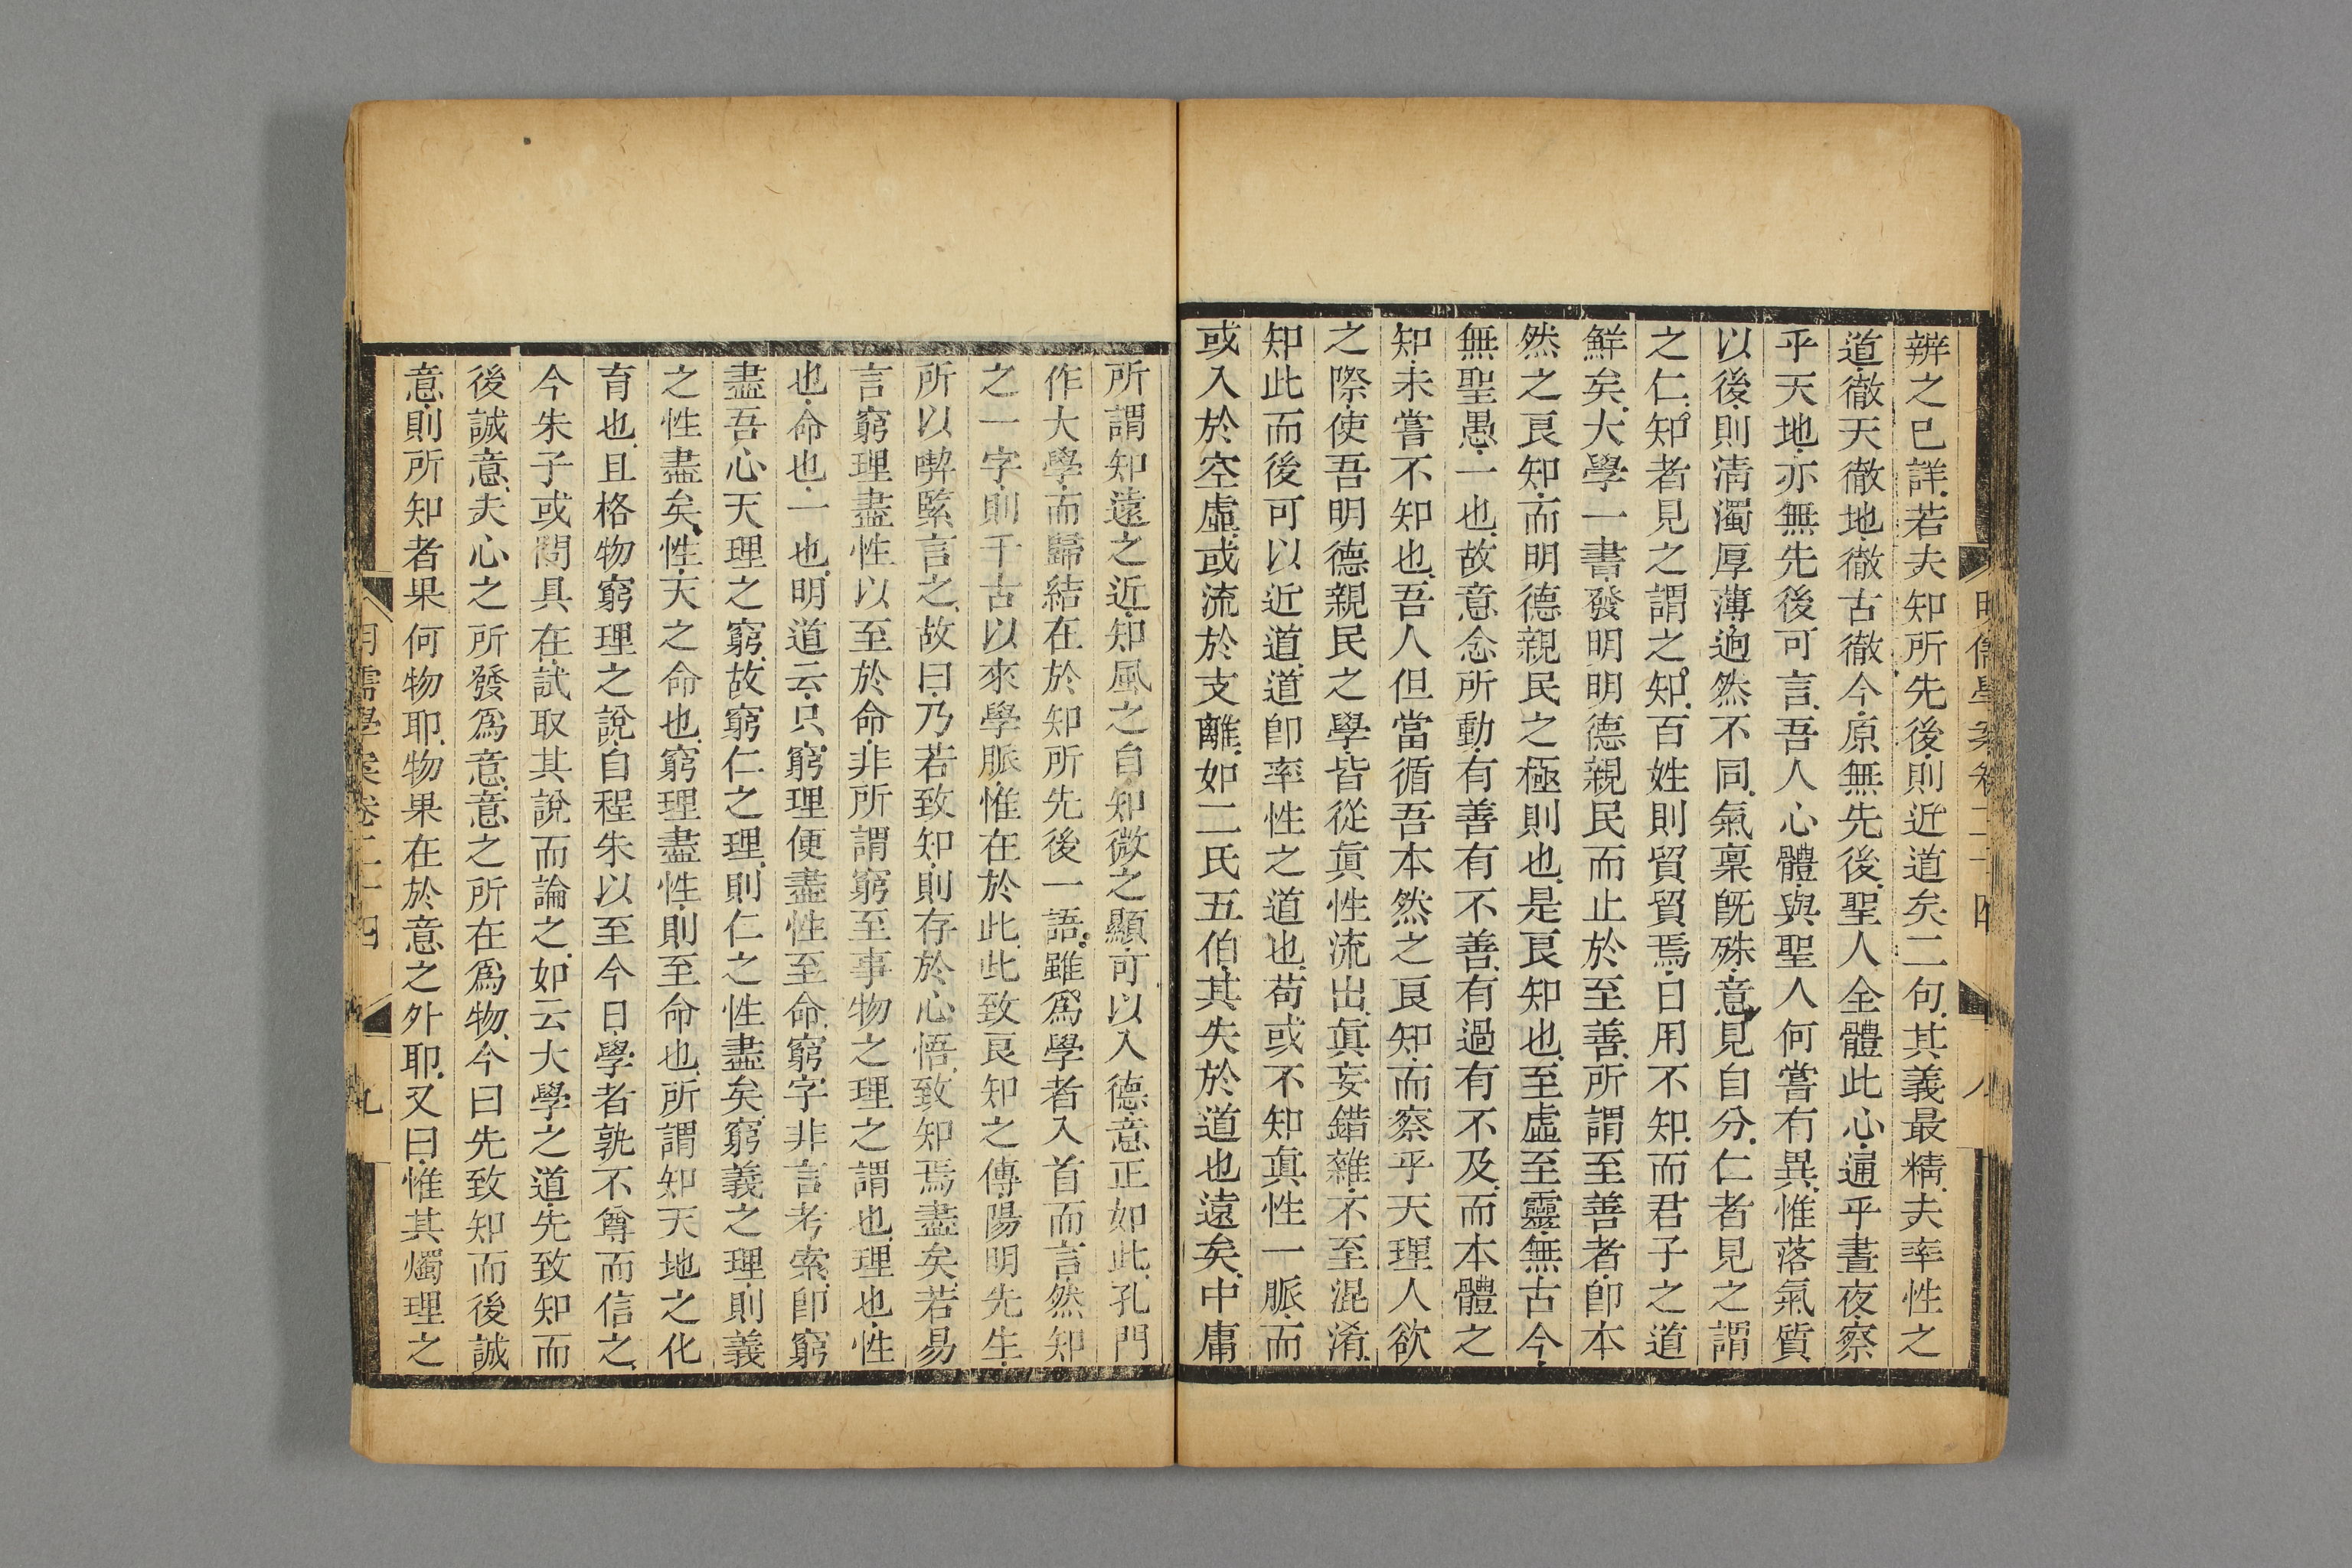 辨之已詳若夫知所先後則近道矣二句其義最精夫率性之
道徹天徹地徹古徹今原無先後聖人全體此心通乎晝夜察
乎天地亦無先後可言吾人心體與聖人何嘗有異惟落氣質
以後則淸濁厚薄逈然不同氣稟旣殊意見自分仁者見之謂
之仁知者見之謂之知百姓則貿貿焉日用不知而君子之道
鮮矣大學一書發明明德親民而止於至善所謂至善者卽本
然之良知而明德親民之極則也是良知也至虛至靈無古今
無聖愚一也故意念所動有善有不善有過有不及而本體之
知未嘗不知也吾人但當循吾本然之良知而察乎天理人欲
之際使吾明德親民之學皆從眞性流出眞妄錯雜不至混淆
知此而後可以近道道卽率性之道也苟或不知眞性一脈而
或入於空虛或流於支離如二氏五伯其失於道也遠矣中庸
所謂知遠之近知風之自知微之顯可以入德意正如此孔門
作大學而歸結在於知所先後一語雖爲學者入首而言然知
之一字則千古以來學脈惟在於此此致良知之傳陽明先生
所以喫緊言之故曰乃若致知則存於心悟致知焉盡矣若易
言窮理盡性以至於命非所謂窮至事物之理之謂也理也性
也命也一也明道云只窮理便盡性至命窮字非言考索卽窮
盡吾心天理之窮故窮仁之理則仁之性盡矣窮義之理則義
之性盡矣性天之命也窮理盡性則至命也所謂知天地之化
育也且格物窮理之說自程朱以至今日學者孰不尊而信之
今朱子或問具在試取其說而論之如云大學之道先致知而
後誠意夫心之所發爲意意之所在爲物今曰先致知而後誠
意則所知者果何物耶物果在於意之外耶又曰惟其燭理之
明儒學案卷二十四
九